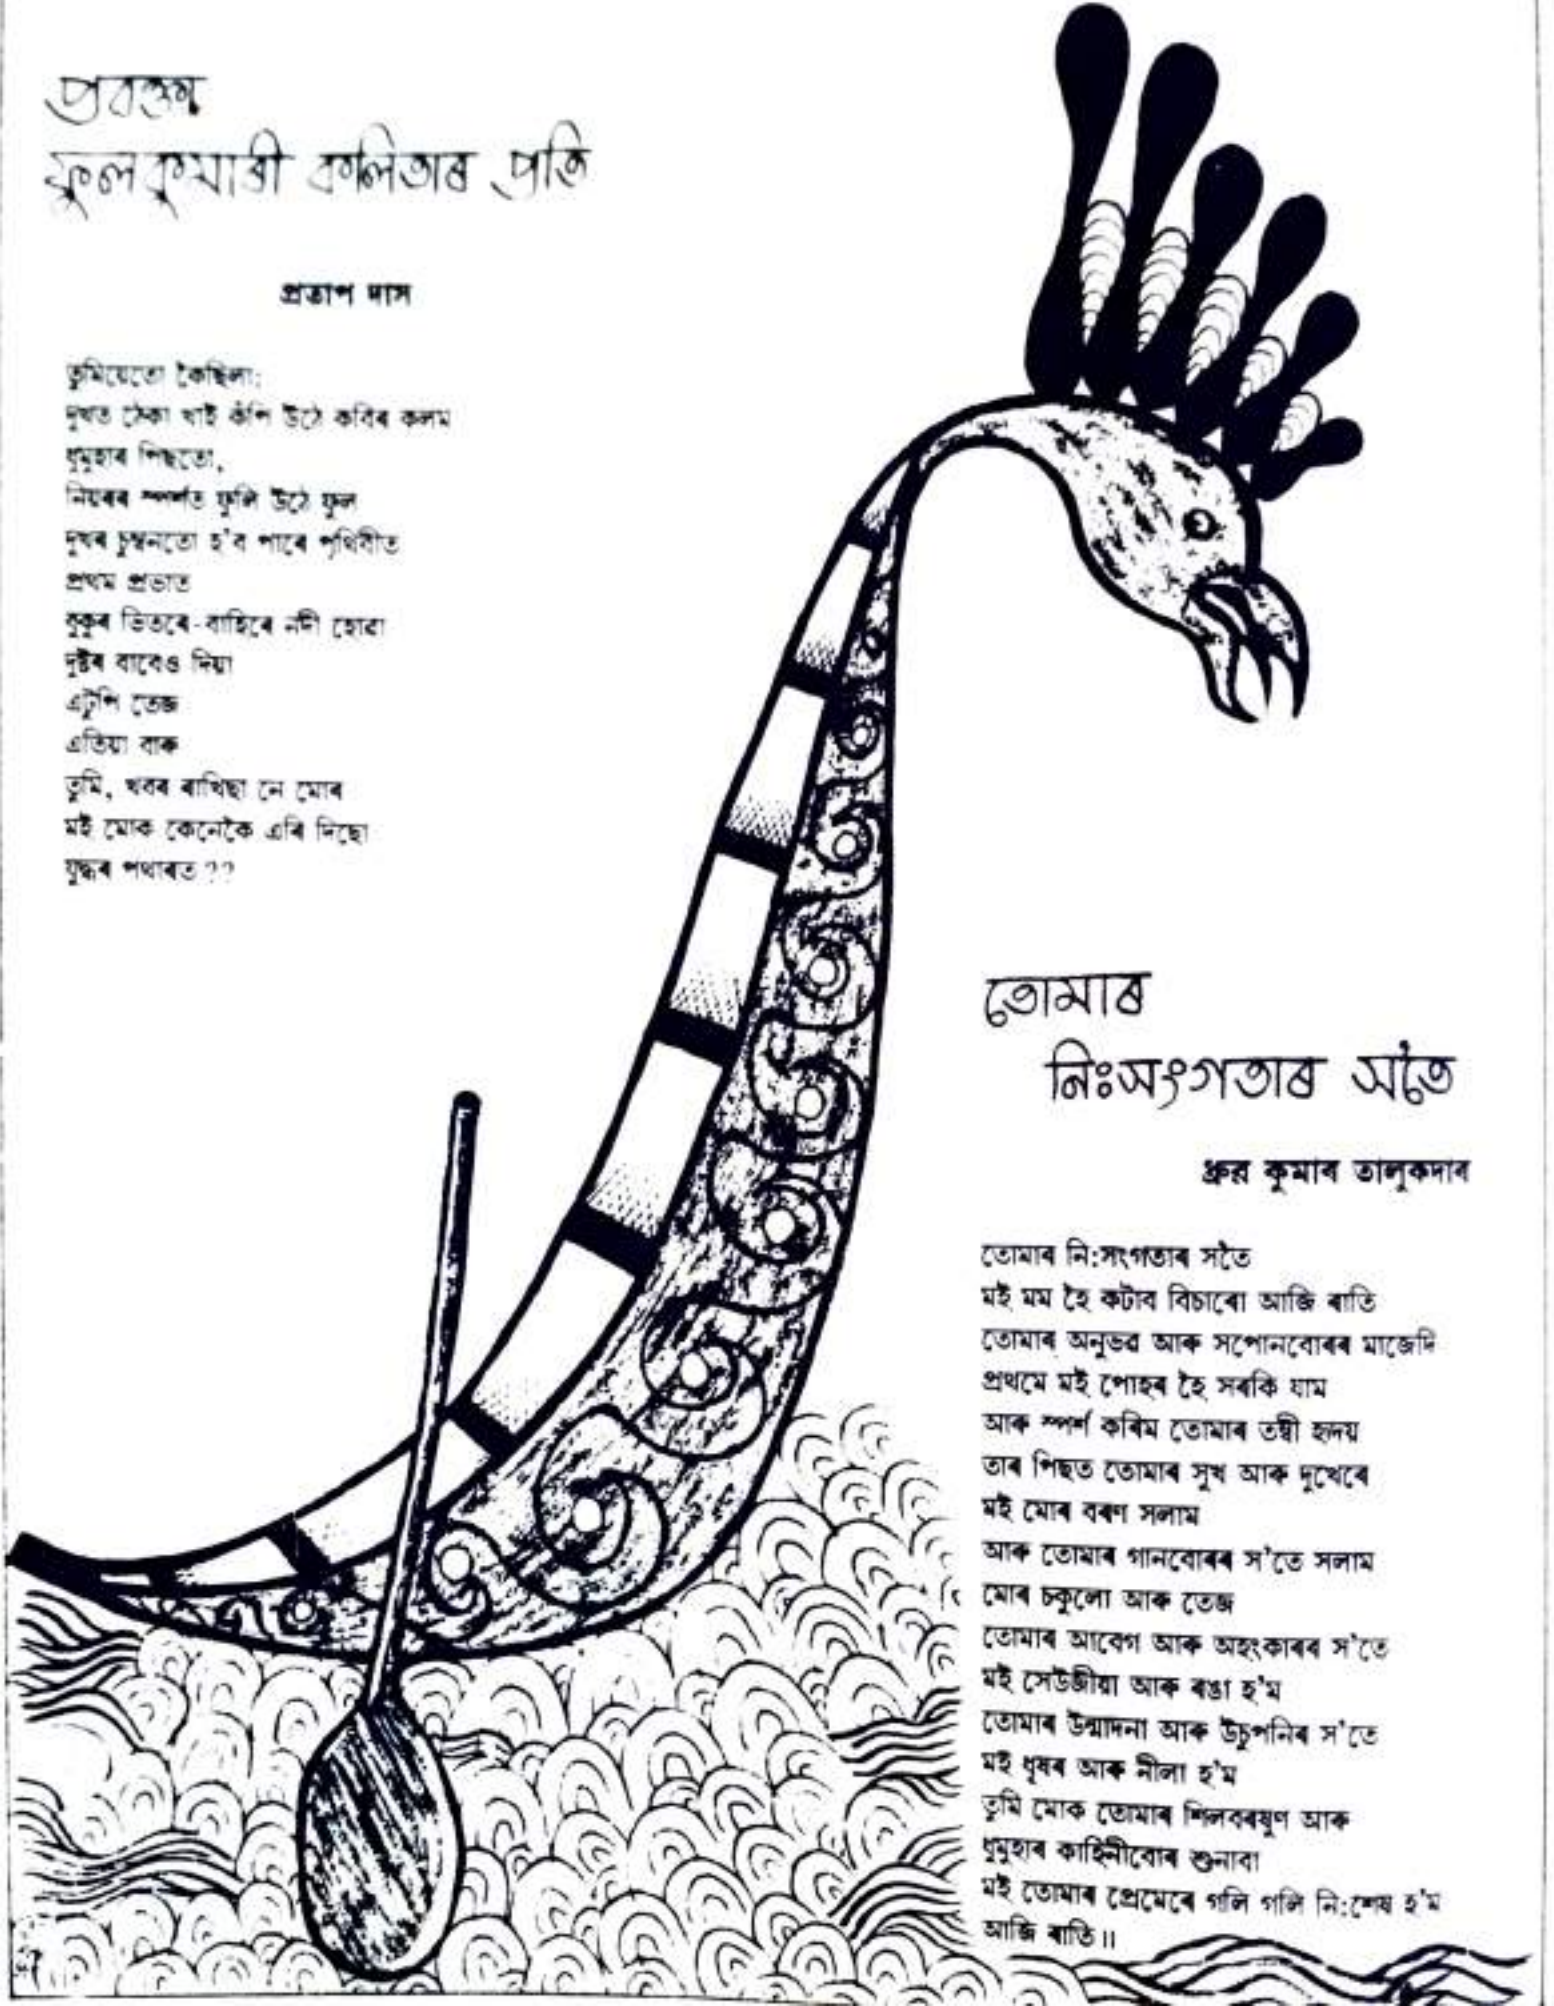 প্ৰবক্তা
ফুলকুমাৰী কলিতাৰ প্ৰতি
প্ৰতাপ দাস
তুমিয়েতো কৈছিলা:
দুখত ঠেকা খাই কঁপি উঠে কবিৰ কলম
ধুমুহাৰ পিছতো,
নিয়ৰৰ স্পৰ্শত ফুলি উঠে ফুল
দুখৰ চুম্বনতো হ'ব পাৰে পৃথিবীত
প্ৰথম প্ৰভাত
বুকুৰ ভিতৰে-বাহিৰে নদী হোৱা
দুষ্টৰ বাবেও দিয়া
এটুপি তেজ
এতিয়া বাৰু
তুমি, খবৰ ৰাখিছা নে মোৰ
মই মোক কেনেকৈ এৰি দিছো
যুদ্ধৰ পথাৰত??
তোমাৰ
নিঃসংগতাৰ সতৈ
ধ্ৰুৱ কুমাৰ তালুকদাৰ
তোমাৰ নি:সংগতাৰ সতৈ
মই মম হৈ কটাব বিচাৰো আজি ৰাতি
তোমাৰ অনুভৱ আৰু সপোনবোৰৰ মাজেদি
প্ৰথমে মই পোহৰ হৈ সৰকি যাম
আৰু স্পৰ্শ কৰিম তোমাৰ তন্বী হৃদয়
তাৰ পিছত তোমাৰ সুখ আৰু দুখেৰে
মই মোৰ বৰণ সলাম
আৰু তোমাৰ গানবোৰৰ স'তে সলাম
মোৰ চকুলো আৰু তেজ
তোমাৰ আবেগ আৰু অহংকাৰৰ স'তে
মই সেউজীয়া আৰু ৰঙা হ'ম
তোমাৰ উন্মাদনা আৰু উচুপনিৰ স'তে
মই ধূষৰ আৰু নীলা হ'ম
তুমি মোক তোমাৰ শিলবৰষুণ আৰু
ধুমুহাৰ কাহিনীবোৰ শুনাবা
মই তোমাৰ প্ৰেমেৰে গলি গলি নি:শেষ হ'ম
আজি ৰাতি॥